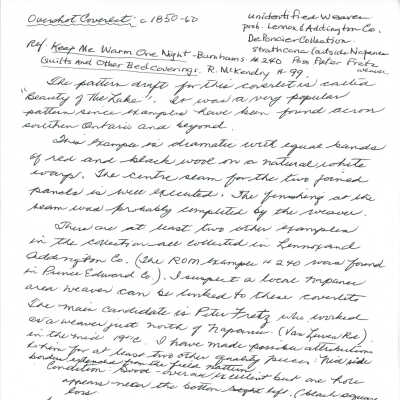 Overshot Coverlet c 1850-60
unidentified Weaver
prob. Lennox & Addington Co.
DePencier Collection
Strathcona (outside Napanee
Pos Peter Fretz
weaver
Ref Keep Me Warm One Night - Burnhams # 240
Quilts And Other Bedcoverings. R. McKendry # 99.
The pattern draft for this coverlet is called
"Beauty of The Lake". It was a very popular
pattern since examples have been found across
southern Ontario and beyond.
This example is dramatic with equal bands
of red and black wool on a natural white
warp. The centre seam for the two joined
panels is well executed. The finishing at the
seam was probably completed by the weaver.
There are at least two other examples
in the collection all collected in Lennox and
Addington Co. (The ROM example # 240 was found
in Prince Edward Co). I suspect a local Napanee
area weaver can be linked to these coverlets
The main candidate is Peter Fretz who worked
as a weaver just north of Napanee. (Van Luven Rd)
in the mid 19th C. I have made possible attributions
to him for at least two other quality pieces. Nice side
border extensions from the field pattern
Condition Good - overall excellent but one hole
appears near the bottom right left. (black square
loss